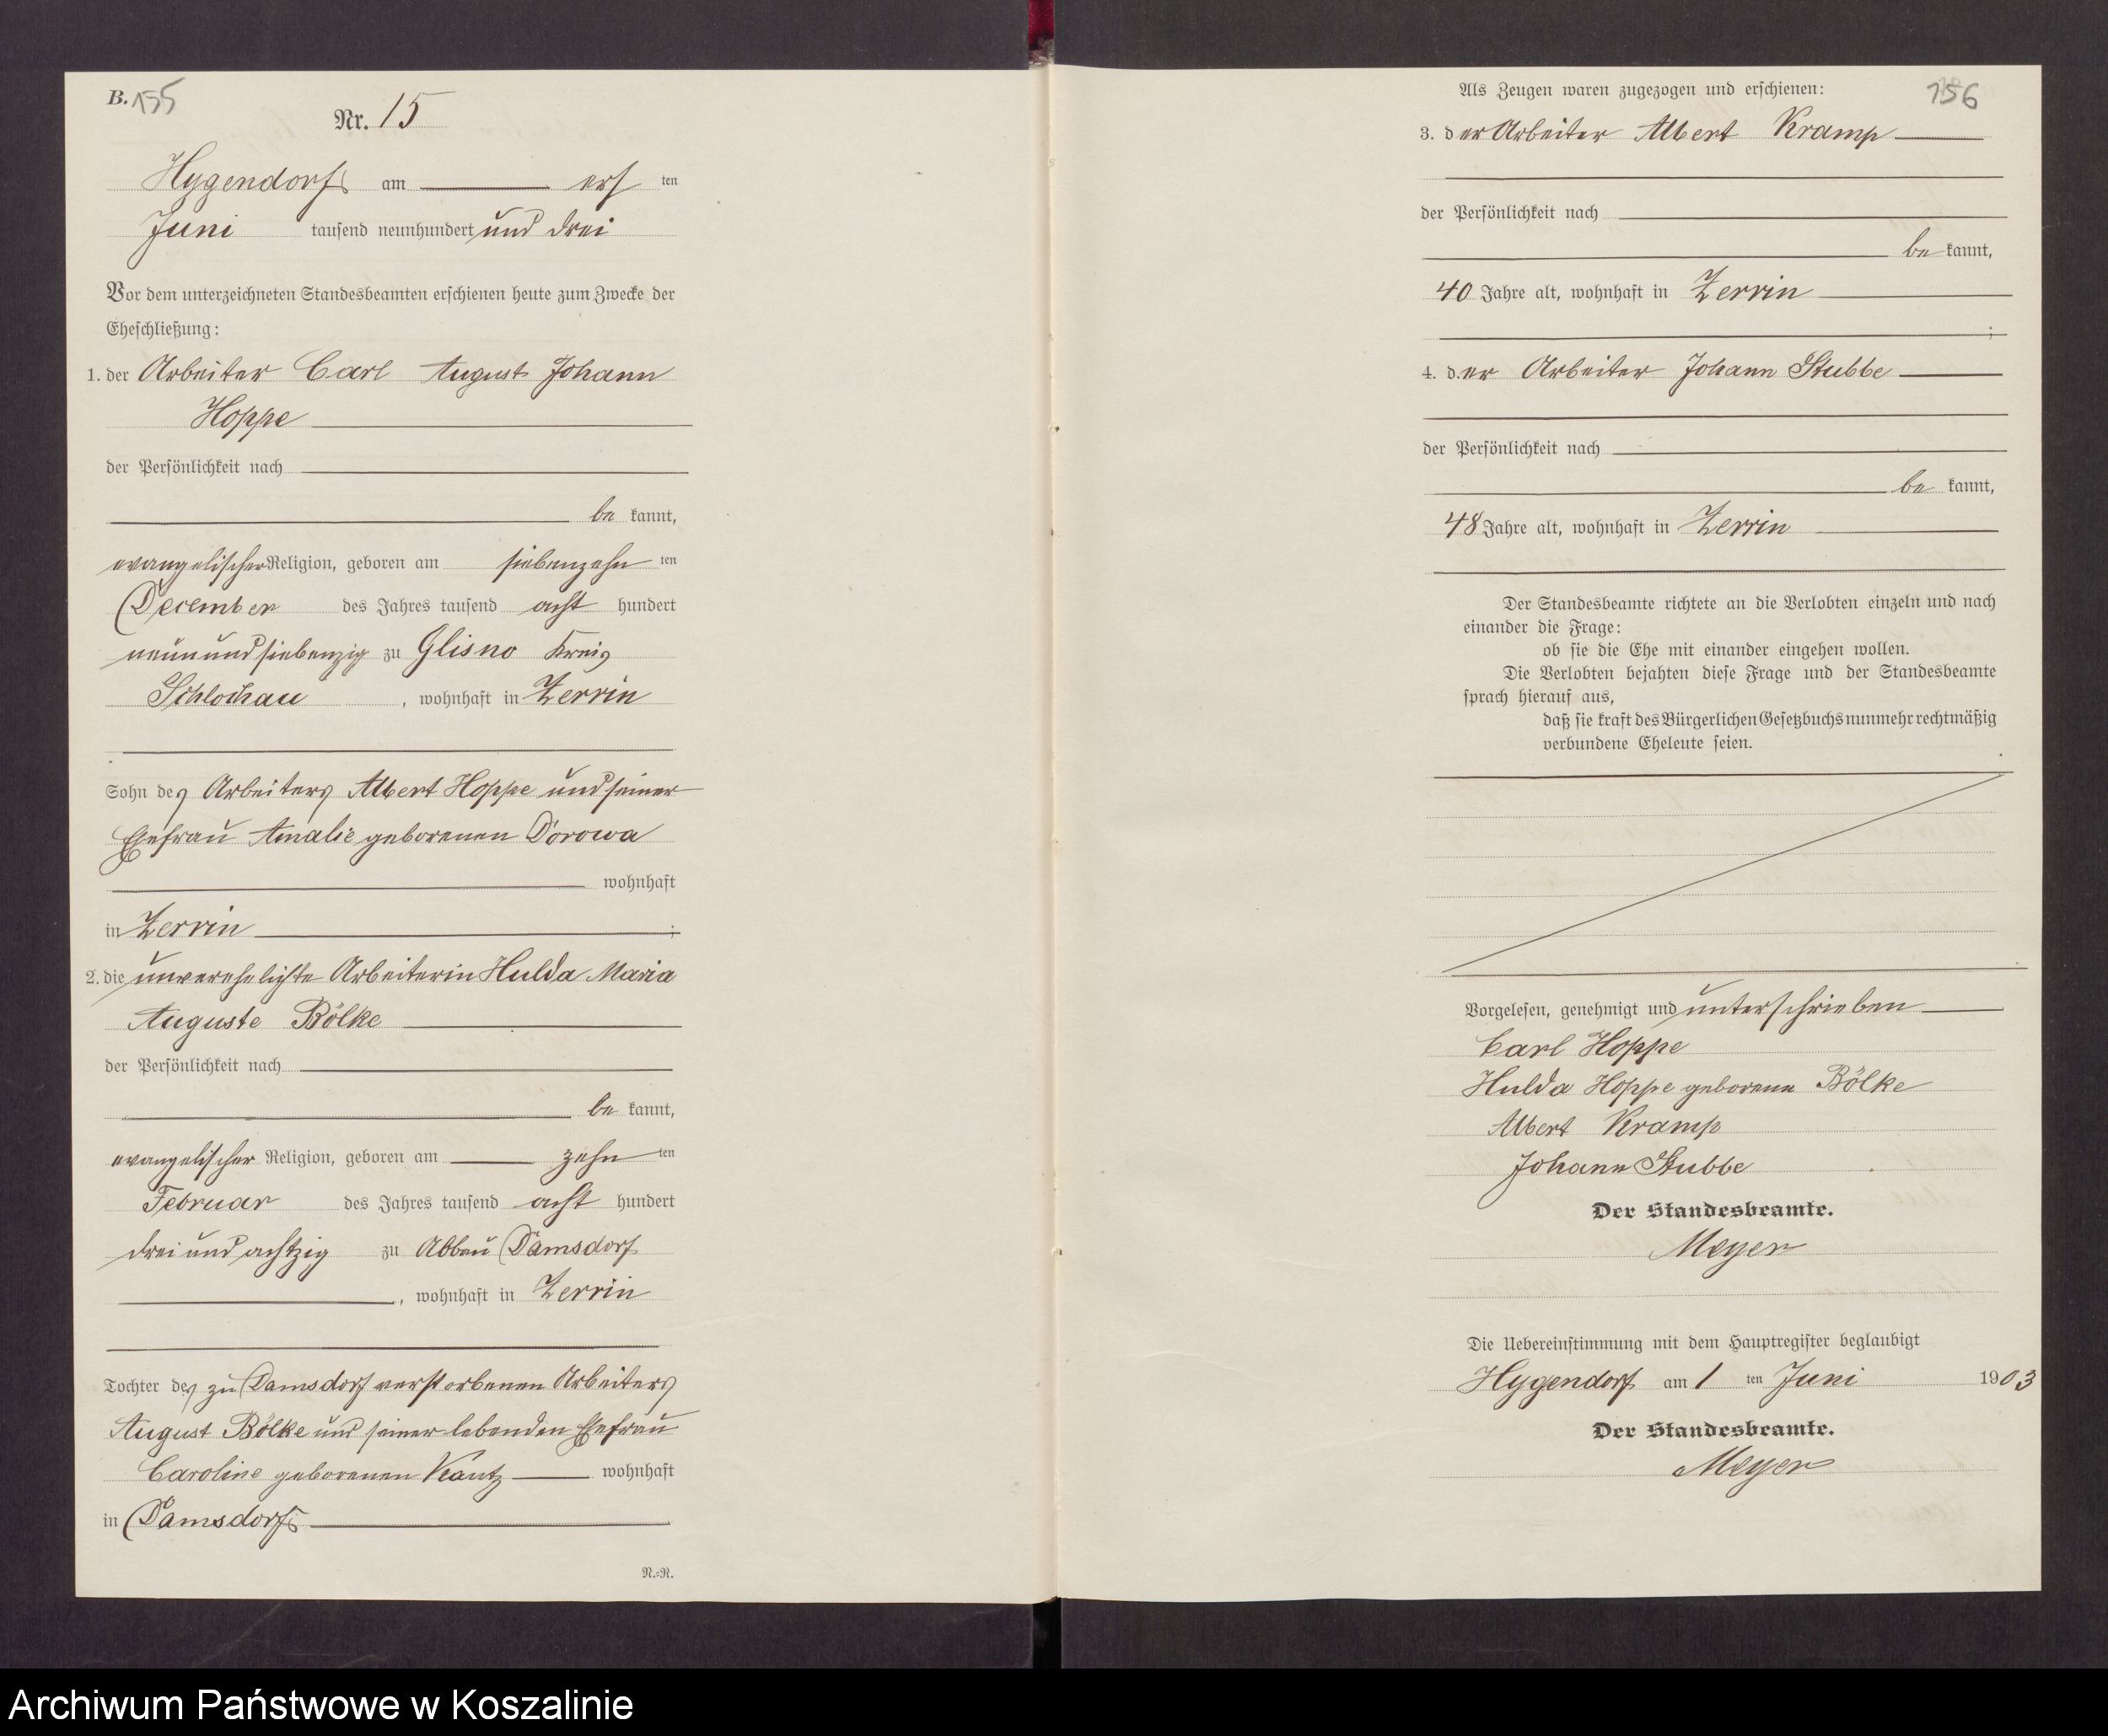 B. 155
Nr. 15
Hygendorf am erſ ten
Juni tauſend neunhundert und drei
Vor dem unterzeichneten Standesbeamten erſchienen heute zum Zwecke der
Eheſchließung:
1. der Arbeiter Carl August Johann
Hoppe
der Perſönlichkeit nach
be kannt,
evangeliſcher Religion, geboren am ſiebenzehn ten
December des Jahres tauſend acht hundert
neunundſiebenzig zu Glisno Kreis
Schlochau, wohnhaft in Zerrin
Sohn des Arbeiters Albert Hoppe und ſeiner
Ehefrau Amalie geborenen Dorowa
wohnhaft
in Zerrin;
2. die unverehelichte Arbeiterin Hulda Maria
Auguste Bölke
der Perſönlichkeit nach
be kannt,
evangeliſcher Religion, geboren am zehn ten
Februar des Jahres tauſend acht hundert
drei und achtzig zu Abbau Damsdorf
, wohnhaft in Zerrin
Tochter des zu Damsdorf verſtorbenen Arbeiters
August Bölke und ſeiner lebenden Ehefrau
Caroline geborenen Kautz wohnhaft
in Damsdorf
N.-R.
156
Als Zeugen waren zugezogen und erſchienen:
3. der Arbeiter Albert Kramp
der Perſönlichkeit nach
be kannt,
40 Jahre alt, wohnhaft in Zerrin
;
4. der Arbeiter Johann Stubbe
der Perſönlichkeit nach
be kannt,
48 Jahre alt, wohnhaft in Zerrin
Der Standesbeamte richtete an die Verlobten einzeln und nach
einander die Frage:
ob ſie die Ehe mit einander eingehen wollen.
Die Verlobten bejahten dieſe Frage und der Standesbeamte
ſprach hierauf aus,
daß ſie kraft des Bürgerlichen Geſetzbuchs nunmehr rechtmäßig
verbundene Eheleute ſeien.
Vorgeleſen, genehmigt und unterſchrieben
Carl Hoppe
Hulda Hoppe geborene Bölke
Albert Kramp
Johann Stubbe
Der Standesbeamte.
Meyer
Die Uebereinſtimmung mit dem Hauptregiſter beglaubigt
Hygendorf am 1 ten Juni 1903
Der Standesbeamte.
Meyer
Archiwum Państwowe w Koszalinie